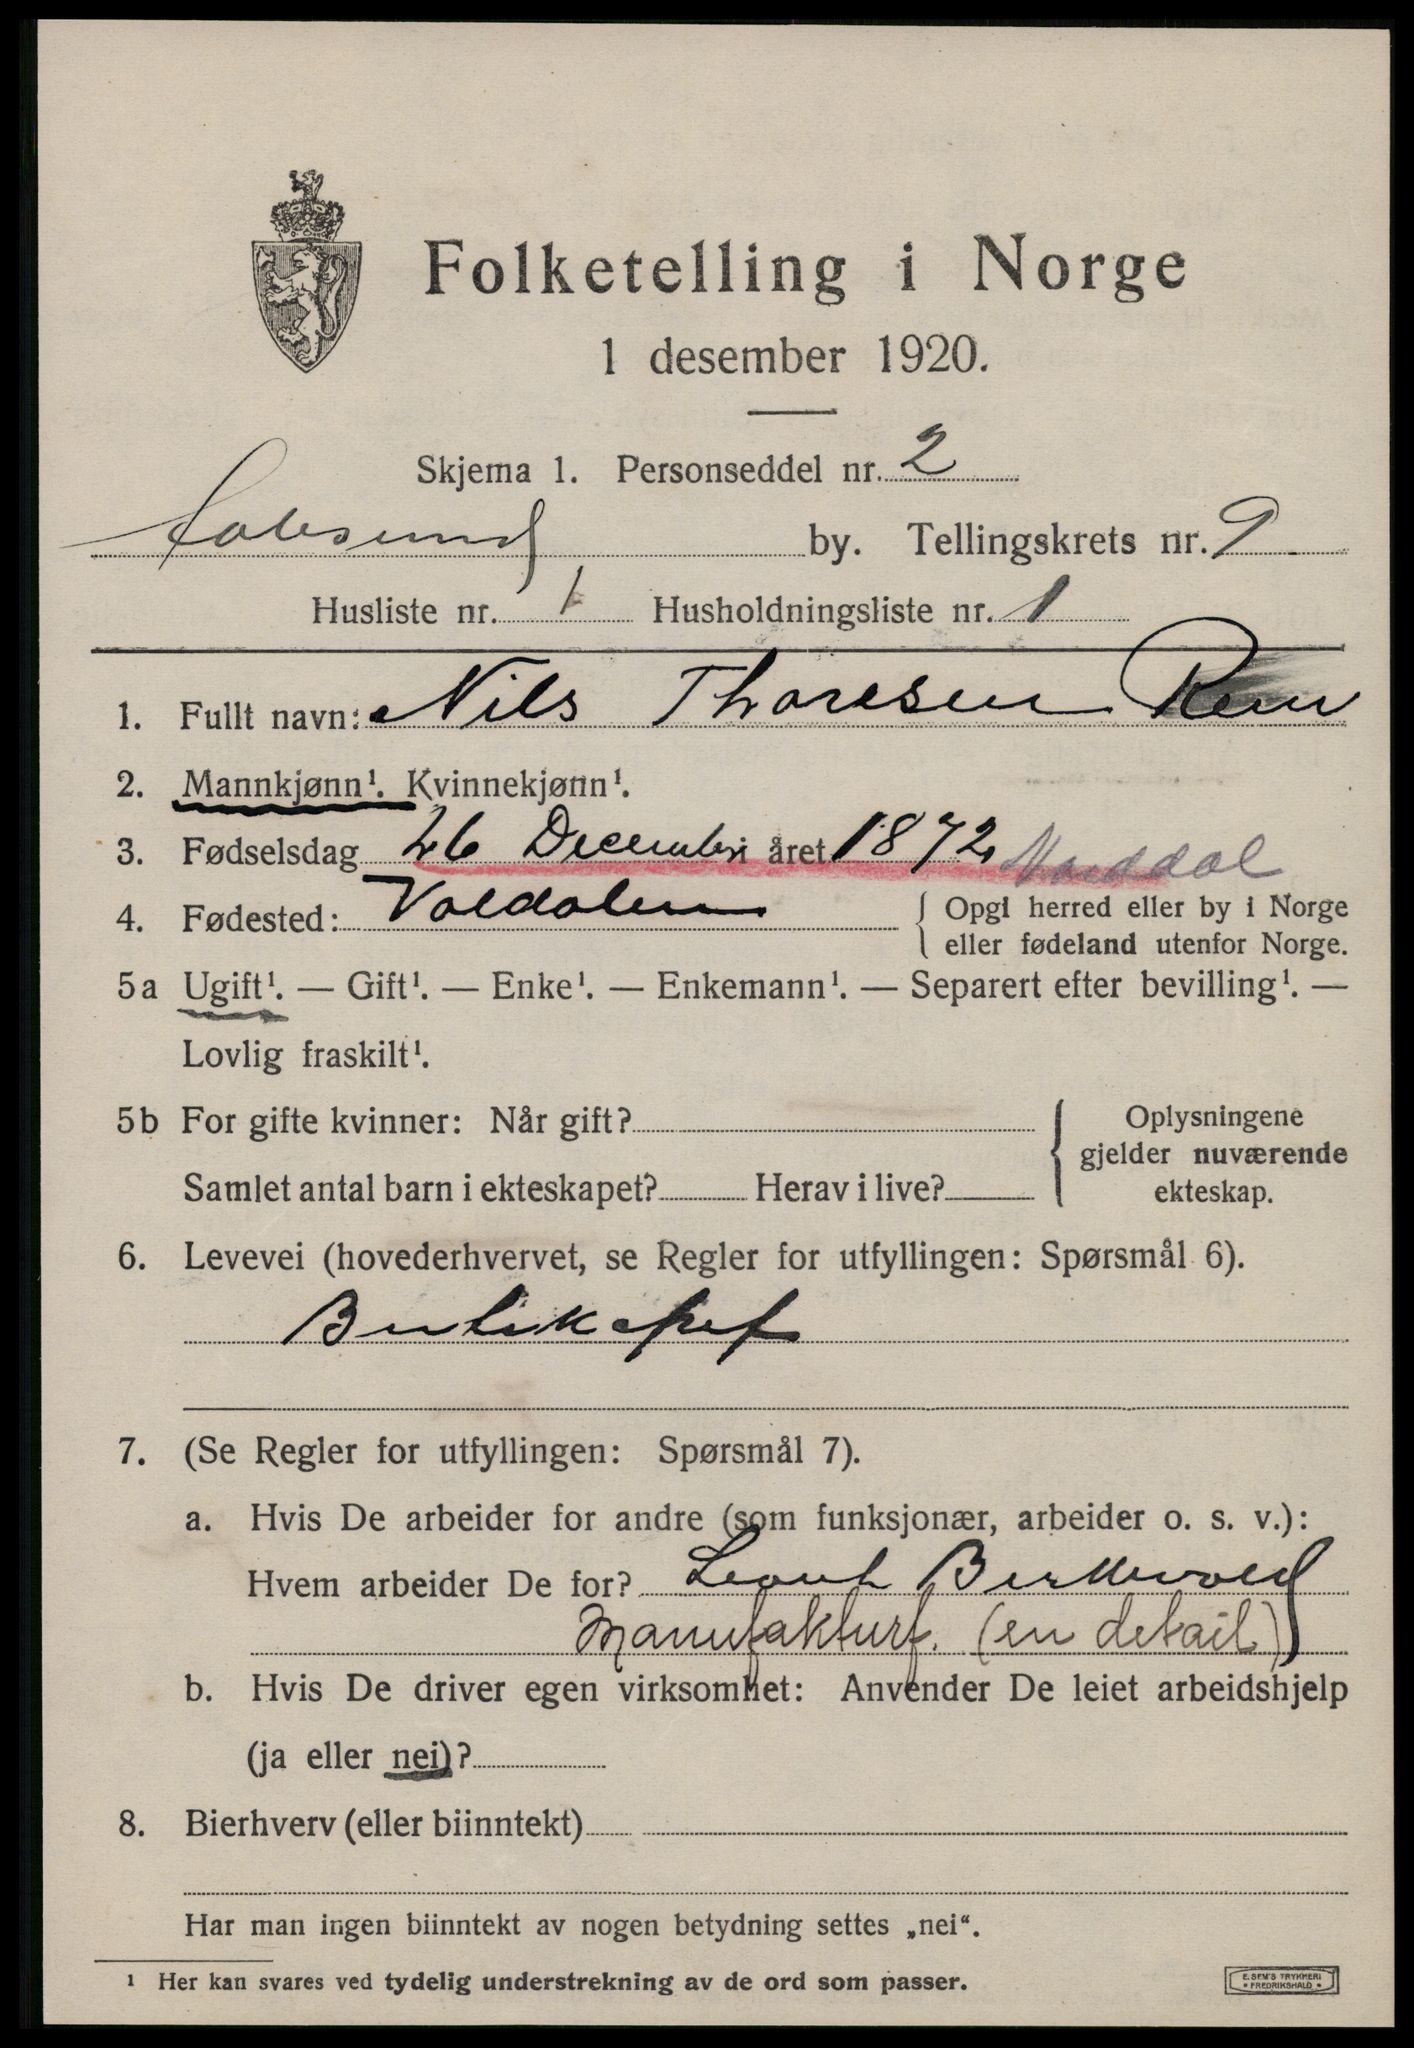 Folketelling i Norge
1 desember 1920.
Skjema 1. Personseddel nr. 2
Aalesund by. Tellingskrets nr. 9
Husliste nr. 1 Husholdningsliste nr. 1
1. Fullt navn: Nils Thoresen Rem
2. Mannkjønn¹. Kvinnekjønn¹.
3. Fødselsdag 26 December året 1872 Norddal
4. Fødested: Valdalen { Opgi herred eller by i Norge
eller fødeland utenfor Norge.
5a Ugift¹. — Gift¹. — Enke¹. — Enkemann¹. — Separert efter bevilling¹. —
Lovlig fraskilt¹.
5b For gifte kvinner: Når gift?
Samlet antal barn i ekteskapet? Herav i live?
{ Oplysningene
gjelder nuværende
ekteskap.
6. Levevei (hovederhvervet, se Regler for utfyllingen: Spørsmål 6).
Butikchef
7. (Se Regler for utfyllingen: Spørsmål 7).
a. Hvis De arbeider for andre (som funksjonær, arbeider o. s. v.):
Hvem arbeider De for?
Manufakturf. (en detail)
b. Hvis De driver egen virksomhet: Anvender De leiet arbeidshjelp
(ja eller nei)?
8. Bierhverv (eller biinntekt)
Har man ingen biinntekt av nogen betydning settes „nei“.
¹ Her kan svares ved tydelig understrekning av de ord som passer.
E. SEM'S TRYKKERI
• FREDRIKSHALD •